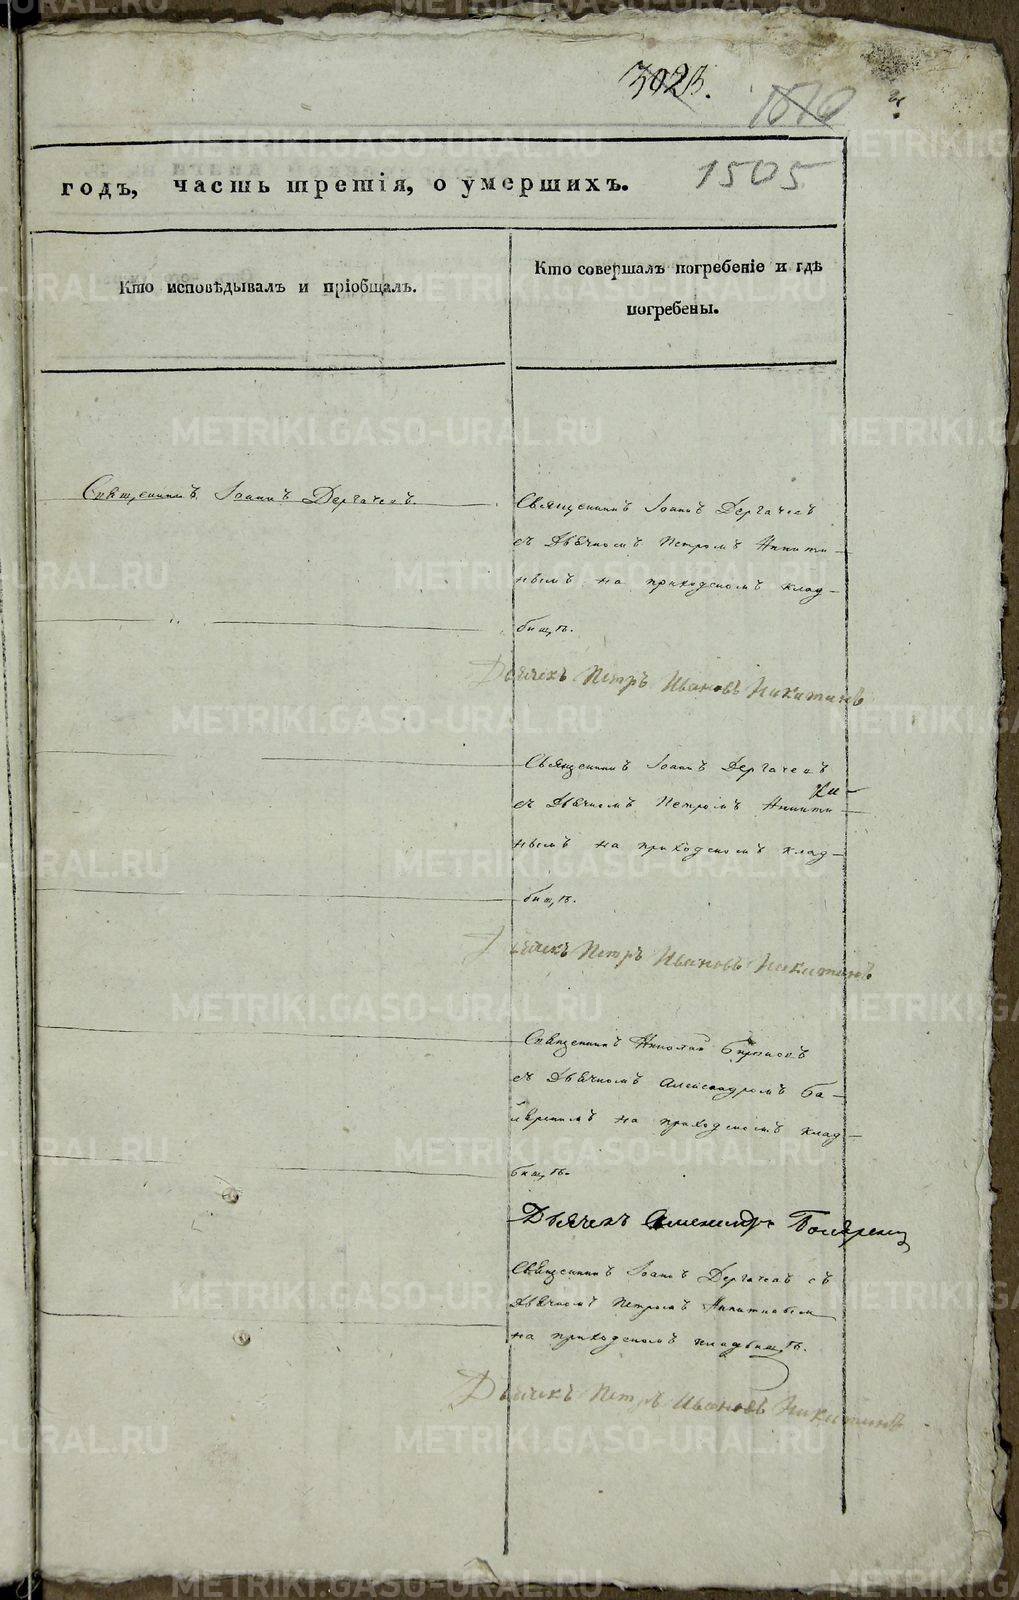 302В.
1505
годъ, часть третія, о умершихъ.
Кто исповѣдывалъ и пріобщалъ.
Кто совершалъ погребеніе и гдѣ
погребены.
Священникъ Іоаннъ Дергачевъ.
Священникъ Іоаннъ Дергачевъ
съ Дьячкомъ Петромъ Никити-
нымъ на приходскомъ клад-
бищѣ.
Дьячекъ Петръ Ивановъ Никитинъ
Священникъ Іоаннъ Дергачевъ
съ Дьячкомъ Петромъ Никити-
нымъ на приходскомъ клад-
бищѣ.
Дьячекъ Петръ Ивановъ Никитинъ
Священникъ Николай
съ Дьячкомъ Александромъ
на приходскомъ клад-
бищѣ.
Дьячекъ
Священникъ Іоаннъ Дергачевъ съ
Дьячкомъ Петромъ
на приходскомъ кладбищѣ.
Дьячекъ Петръ Ивановъ Никитинъ
METRIKI.GASO-URAL.RU